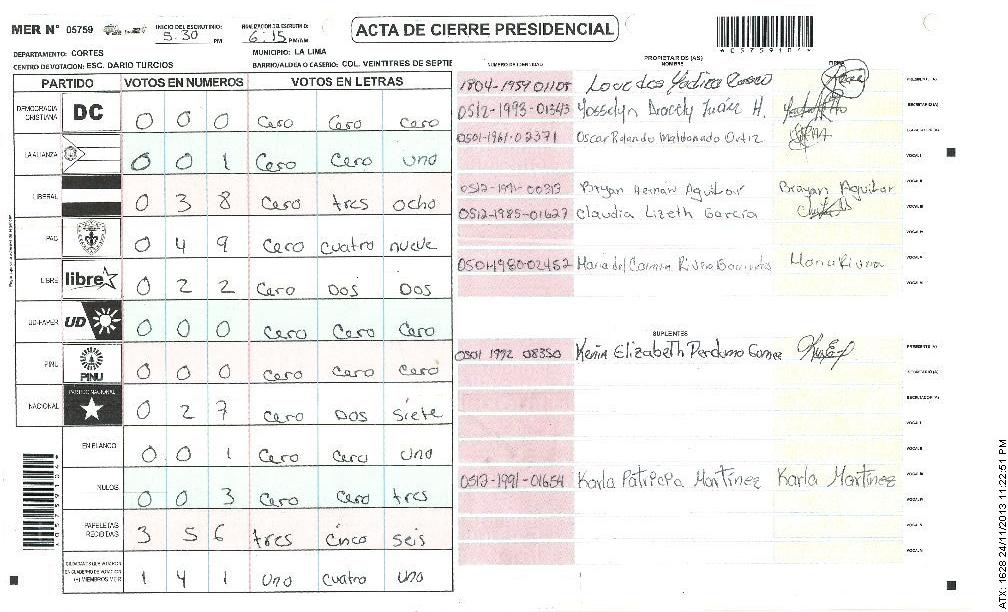 MER N° 05759
INICIO DEL ESCRUTINIO: 5:30 PM
6:15 PM/AM
ACTA DE CIERRE PRESIDENCIAL
DEPARTAMENTO: CORTES
MUNICIPIO: LA LIMA
CENTRO DE VOTACION: ESC. DARIO TURCIOS
BARRIO/ALDEA O CASERIO: COL. VEINTITRES DE SEPTIE
PARTIDO VOTOS EN NUMEROS VOTOS EN LETRAS
DEMOCRACIA CRISTIANA DC 0 0 0 Cero Cero cero
LA ALIANZA 0 0 1 Cero Cero uno
LIBERAL 0 3 8 Cero tres ocho
PAC 0 4 9 Cero cuatro nueve
LIBRE libre 0 2 2 Cero Dos Dos
UD-FAPER UD 0 0 0 Cero Cero Cero
PINU PINU 0 0 0 Cero Cero Cero
NACIONAL PARTIDO NACIONAL 0 2 7 Cero Dos siete
EN BLANCO 0 0 1 Cero Cero uno
NULOS 0 0 3 Cero Cero tres
PAPELETAS RECIBIDAS 3 5 6 tres cinco seis
1 4 1 Uno cuatro uno
NUMERO DE IDENTIDAD
PROPIETARIOS (AS)
NOMBRE
FIRMA
1804-1959-01105 Lourdes
PRESIDENTE (A)
0512-1993-01343 Yosselyn H.
SECRETARIO(A)
0501-1961-02371 Oscar Rolando Maldonado Ortiz
VOCAL I
0512-1991-00313 Bryan Hernan Aguilar Brayan Aguilar
VOCAL II
0512-1985-01627 Claudia Lizeth Garcia
VOCAL III
0501-1980-02452 Maria del Carmen Rivera Maria Rivera
SUPLENTES
0501 1992 08350 Kenia Elizabeth Perdomo Gomez
PRESIDENTE (A)
SECRETARIO(A)
ESCRUTADOR (A)
VOCAL I
VOCAL II
0512-1991-01654 Karla Patricia Martinez Karla Martinez
VOCAL III
VOCAL IV
VOCAL V
ATX: 1628 24/11/2013 11:22:51 PM